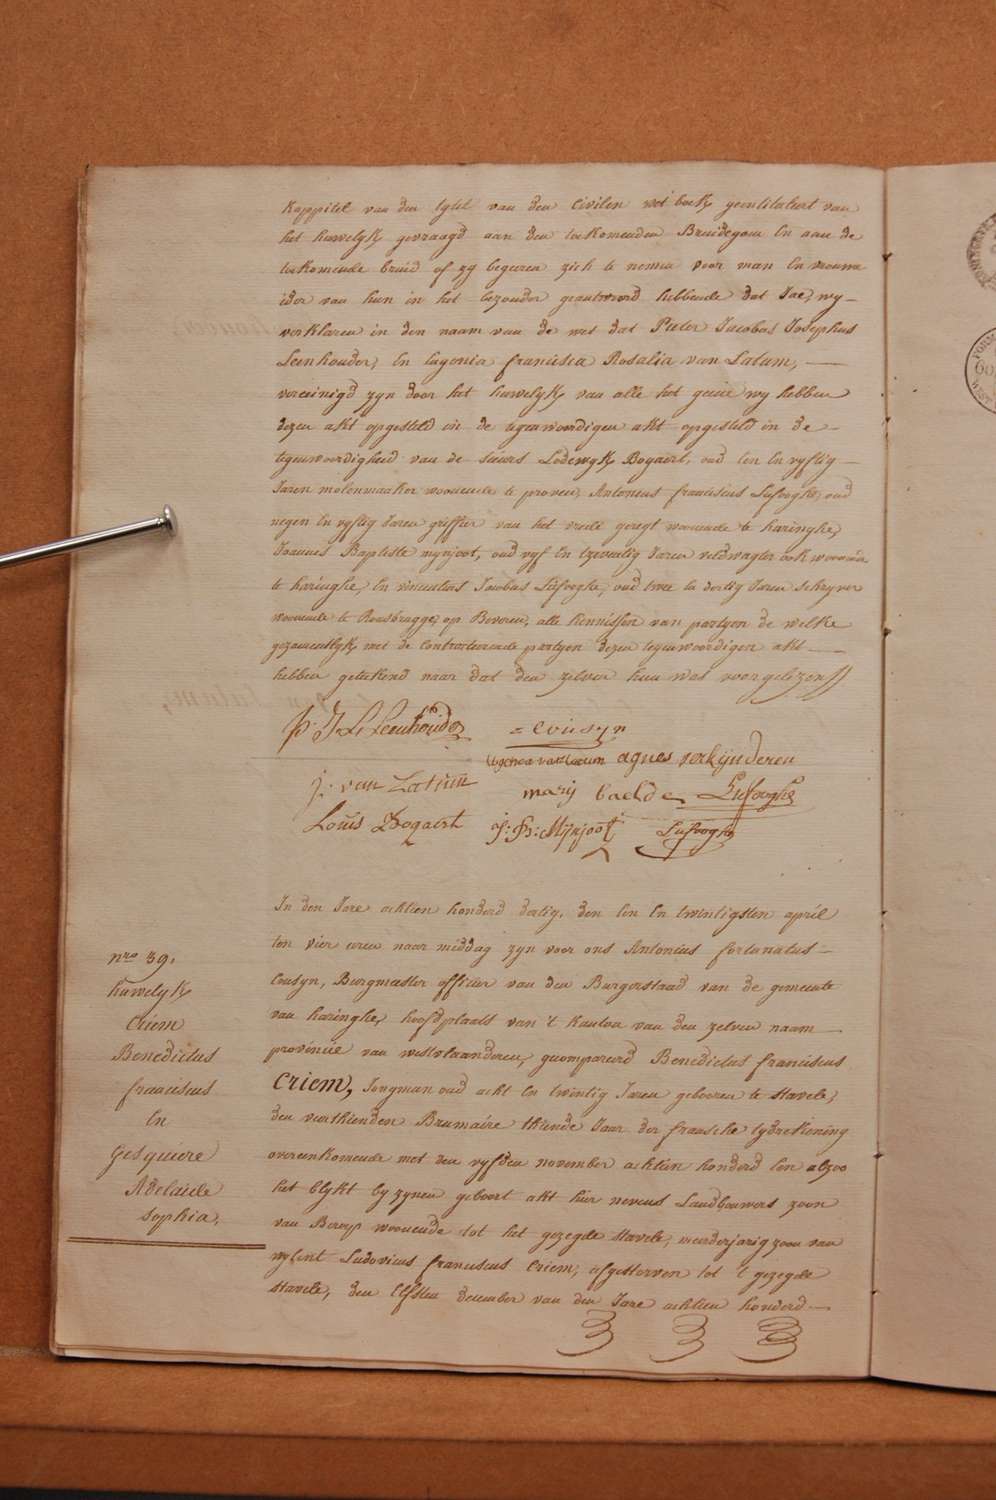 kappitel van den tytel van den Civilen wet boek geintitaleert van
het huwelyk gevraagd aan den toekomenden Bruidegom En aan de
toekomende bruid of zy begeeren zich te nemen voor man En vrouwe
ider van hun in het bezonder geantword hebbende dat Jae, wy
verklaren in den naam van de wet dat Pieter Jacobus Josephus
Leenhouder, En Eugenia francisca Rosalia van Latum,
vereinigd zyn door het huwelyk van alle het geine wy hebben
dezen akt opgesteld in de tegenwoordigen akt opgesteld in de
tegenwoordigheid van de sieurs Lodewyk Bogaert, oud Een En vyftig
Jaren molenmaaker woonende te proven, Antonius franciscus Lufooghe, oud
negen En vyftig Jaren griffier van het vrede geregt woonende te haringhe,
Joannes Baptiste mynjoot, oud vyf En tzeventig Jaren veldwagter ook woonende
te haringhe, En vincentius Jacobus Lufooghe, oud twee En dertig Jaren schryver
woonende te Roesbrugge, op Beveren, alle kennissen van partyen de welke
gezamentlyk met de Contracteerende partyen dezen tegenwoordigen akt
hebben geteekend naar dat den zelven hun was voorgelezen
p: J L Leenhouder = Cousyn
Ugenea van Laeum agnes verkijnderen
j: van Latum mary baelde Lufooghe
Louis Bogaert J: B: Mijnjoot Lufooghe
In den Jare achtien honderd dertig, den Een En twintigsten april
ten vier uren naar middag zyn voor ons Antonius fortunatus
Cousyn, Burgmaester officier van den Burgerstaad van de gemeente
van haringhe, hoofdplaats van 't kanton van den zelven naam
provincie van westvlaanderen, gecompareerd Benedictus franciscus
Criem, Jongman oud acht En twintig Jaren geboren te stavele,
den veerthienden Brumaire thiende Jaar der fransche tydrekening
overeenkomende met den vyfden november achtien honderd Een alzoo
het blykt by zynen geboort akt hier nevens Landbouwers zoon
van Beroep woonende tot het gezegde stavele, meerderjarig zoon van
wylent Ludovicus franciscus Criem, afgestorven tot 't gezegde
stavele, den Elfsten december van den Jare achtien honderd
nro 39.
huwelyk
Criem
Benedictus
franciscus
En
Gesquiere
Adelaide
sophia,